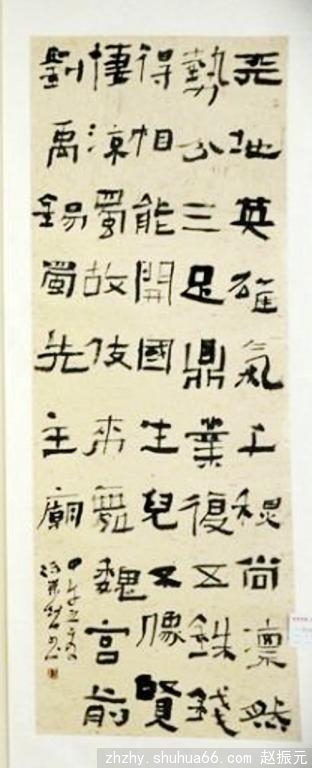 天地英雄氣千秋尚凛然
勢分三足鼎業復五銖錢
得相能開國生兒不像賢
悽凉蜀故伎來舞魏宫前
劉禹錫蜀先主廟
甲午之夏
zhzhy.shuhua66.com 赵振元